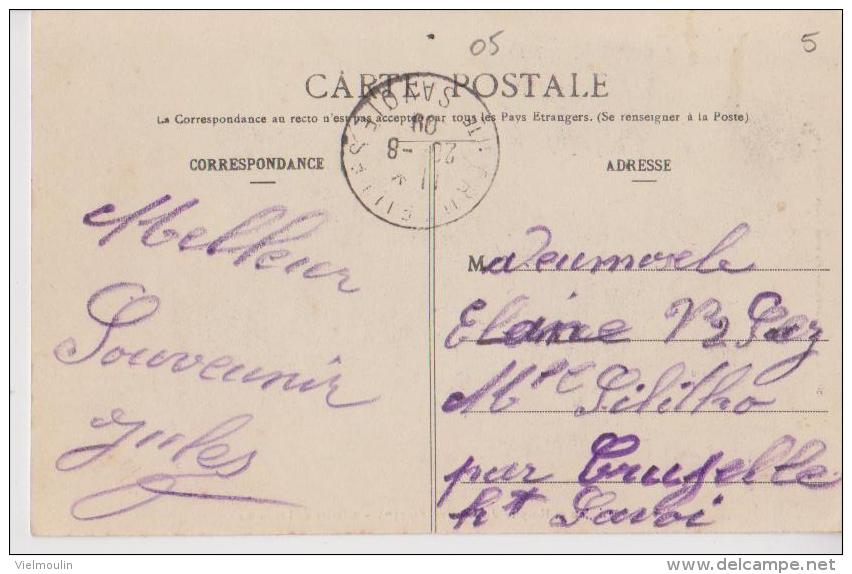 05
5
CARTE POSTALE
La Correspondance au recto n'est pas acceptée par tous les Pays Etrangers. (Se renseigner à la Poste)
CORRESPONDANCE
ADRESSE
SAVOIE
20 -8
11
Meilleur
Souvenir
Jules
Mademosele
Elaine
par Cruselle
ht Savoi
Vielmoulin
delcampe.net